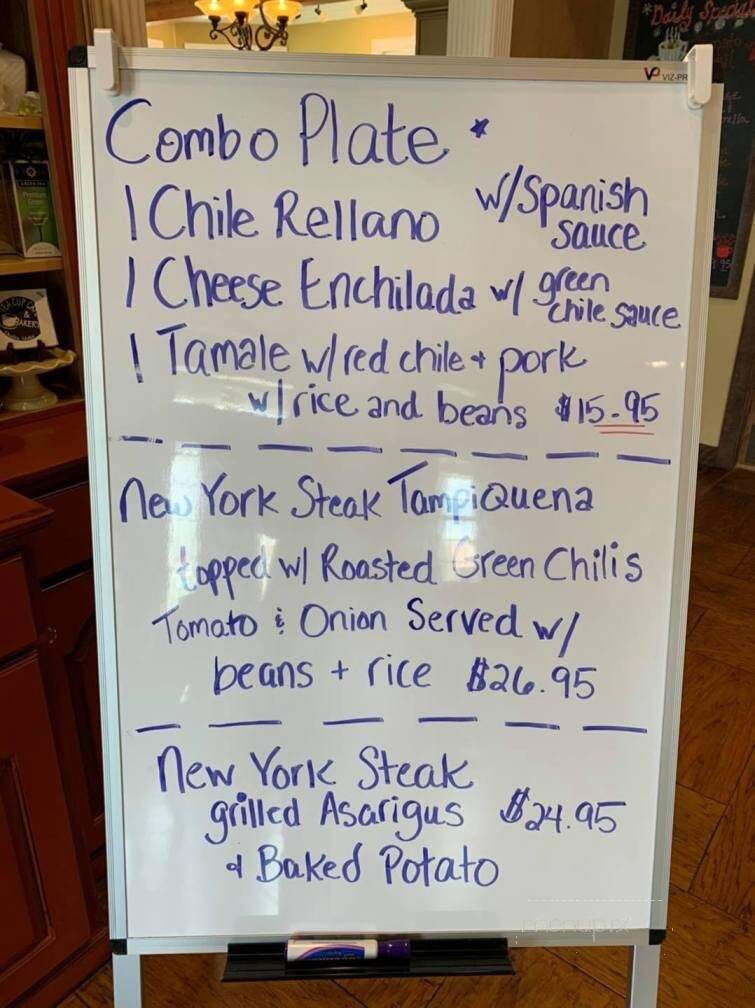 VP VIZ-PR
*Daily Special
Combo Plate *
1 Chile Rellano w/Spanish
sauce
1 Cheese Enchilada w/ green
chile sauce
1 Tamale w/red chile + pork
w/rice and beans $15.95
New York Steak TampiQuena
topped w/ Roasted Green Chilis
Tomato & Onion Served w/
beans + rice $26.95
New York Steak
grilled Asarigus $24.95
& Baked Potato